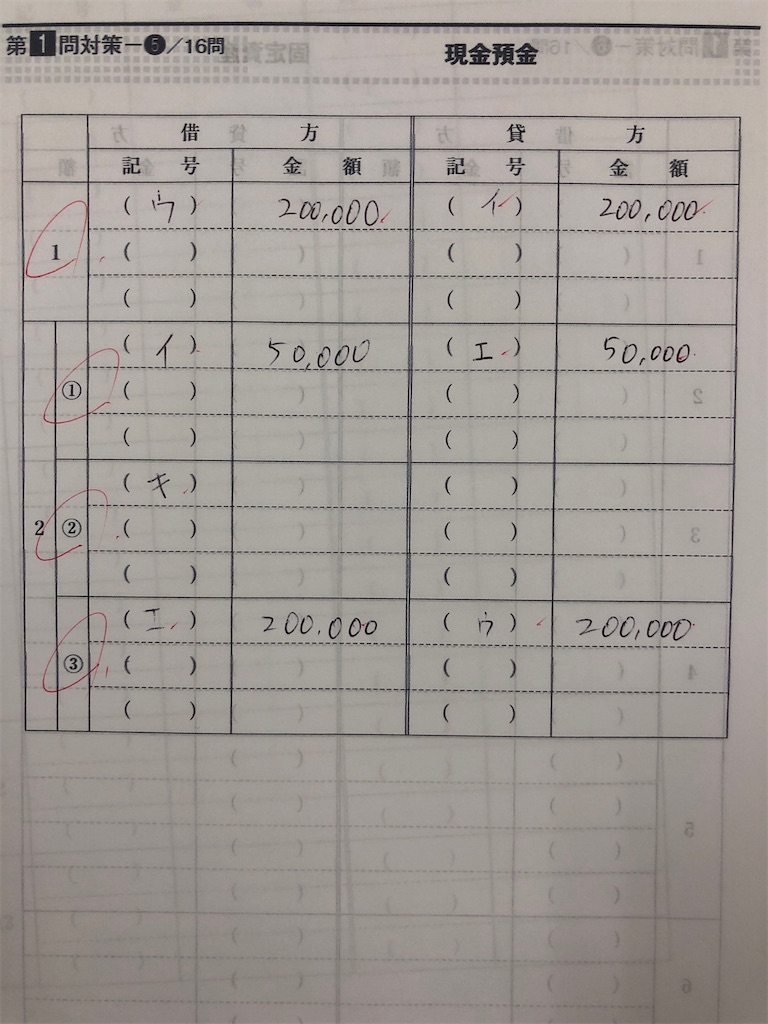 第1問対策－❺／16問 現金預金
借 方 貸 方
記 号 金 額 記 号 金 額
1 ( ウ ) 200,000 ( イ ) 200,000
( ) ( )
( ) ( )
2 ① ( イ ) 50,000 ( エ ) 50,000
( ) ( )
( ) ( )
② ( キ ) ( )
( ) ( )
( ) ( )
③ ( エ ) 200,000 ( ウ ) 200,000
( ) ( )
( ) ( )